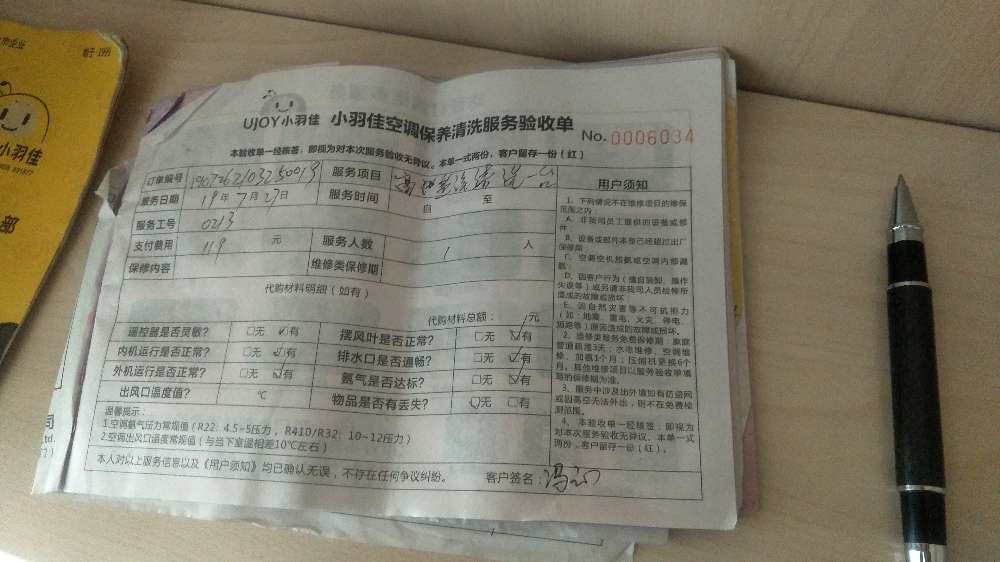 市企业
始于 1999
小羽佳
部
UJOY小羽佳 小羽佳空调保养清洗服务验收单 No.0006034
本验收单一经核签，即视为对本次服务验收无异议。本单一式两份，客户留存一份（红）
订单编号 服务项目 用户须知
服务日期 19年7月27日 服务时间 自 至
服务工号 0213
支付费用 119 元 服务人数 1 人
保修内容 维修类保修期
代购材料明细（如有）
代购材料总额： 元
遥控器是否灵敏？ □无 ☑有 摆风叶是否正常？ □无 ☑有
内机运行是否正常？ □无 ☑有 排水口是否通畅？ □无 ☑有
外机运行是否正常？ □无 ☑有 氨气是否达标？ □无 ☑有
出风口温度值？ ℃ 物品是否有丢失？ ☑无 □有
温馨提示：
1.空调氨气压为常规值（R22：4.5~5压力，R410/R32：10~12压力）
2.空调出风口温度常规值（与当下室温相差10℃左右）
本人对以上服务信息以及《用户须知》均已确认无误，不存在任何争议纠纷。 客户签名：
1、下列情况不在维修项目的维保
范围之内：
A、非我司员工提供的设备或部
件；
B、设备或部件本身已经超过出厂
保修期；
C、空调空机加氨或空调内部漏
氨；
D、因客户行为（擅自装卸、操作
失误等）或另请非我司人员检修所
造成的故障或损坏；
E、因自然灾害等不可抗拒力
（如：地震、雷电、火灾、停电、
短路等）原因造成的故障或损坏。
2、维修类服务免费保修期：家庭
普通维修3天；水电维修、空调维
修、加氨1个月；压缩机更换6个
月。其他维修项目以服务验收单填
写的保修期为准。
3、服务中涉及出外墙如有防盗网
或因高空无法外出，则不在免费检
测范围。
4、本验收单一经核签，即视为
对本次服务验收无异议。本单一式
两份，客户留存一份（红）。